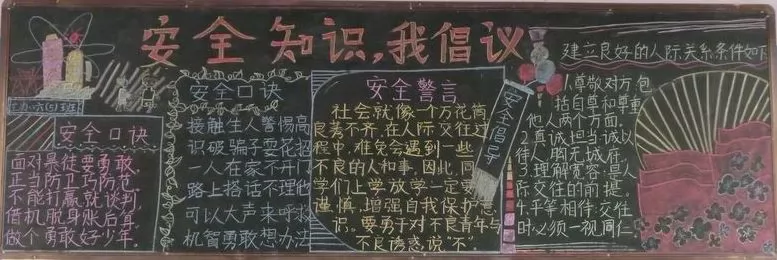 安全知识,我倡议
主办:六(5)班
安全口诀
面对暴徒要勇敢,
正当防卫巧防范。
不能打赢就谈判,
借机脱身账后算,
做个勇敢好少年。
安全口诀
接触生人警惕高
识破骗子耍花招
一人在家不开门
路上搭话不理他
可以大声来呼救
机智勇敢想办法
安全警言
社会就像一个万花筒
良莠不齐,在人际交往过
程中,难免会遇到一些
不良的人和事,因此,同
学们上学放学一定要
谨慎,增强自我保护意
识。要勇于对不良青年与
不良诱惑,说“不”
安全倡导
建立良好的人际关系条件如下
1.尊敬对方,包
括自尊和尊重
他人两个方面,
2.真诚担当诚以
待人,胸无城府,
3.理解宽容:是人
际交往的前提。
4.平等相伴:交往
时必须一视同仁